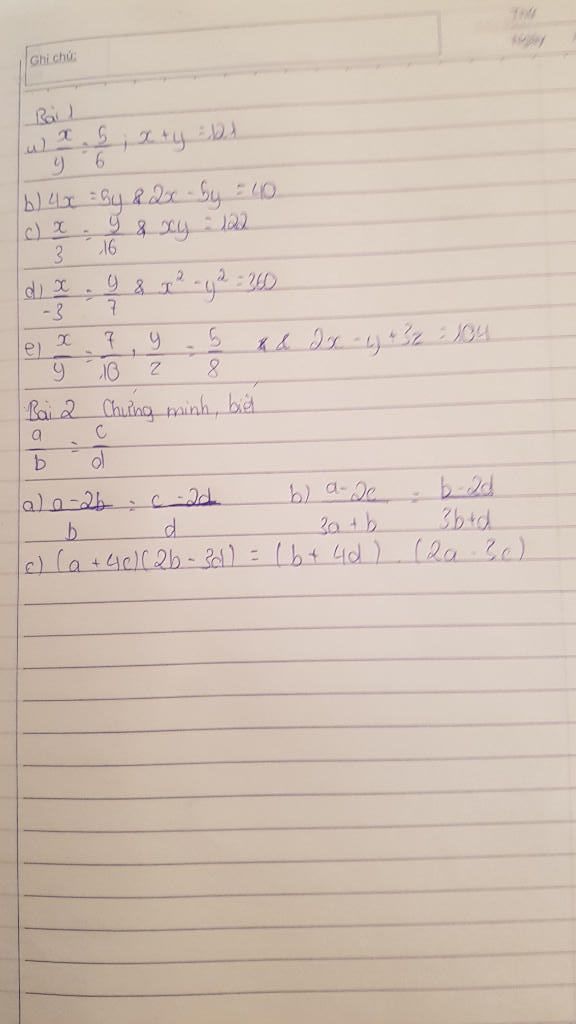 Ghi chú:
Bài 1
a) x/y = 5/6 ; x + y = 121
b) 4x = 5y & 2x - 5y = 40
c) x/3 = y/16 & xy = 122
d) x/-3 = y/7 & x² - y² = 360
e) x/y = 7/10, y/z = 5/8 & 2x - y + 3z = 104
Bài 2 Chứng minh, biết
a/b = c/d
a) a-2b/b = c-2d/d b) a-2c/3a+b = b-2d/3b+d
c) (a + 4c)(2b - 3d) = (b + 4d) . (2a - 3c)